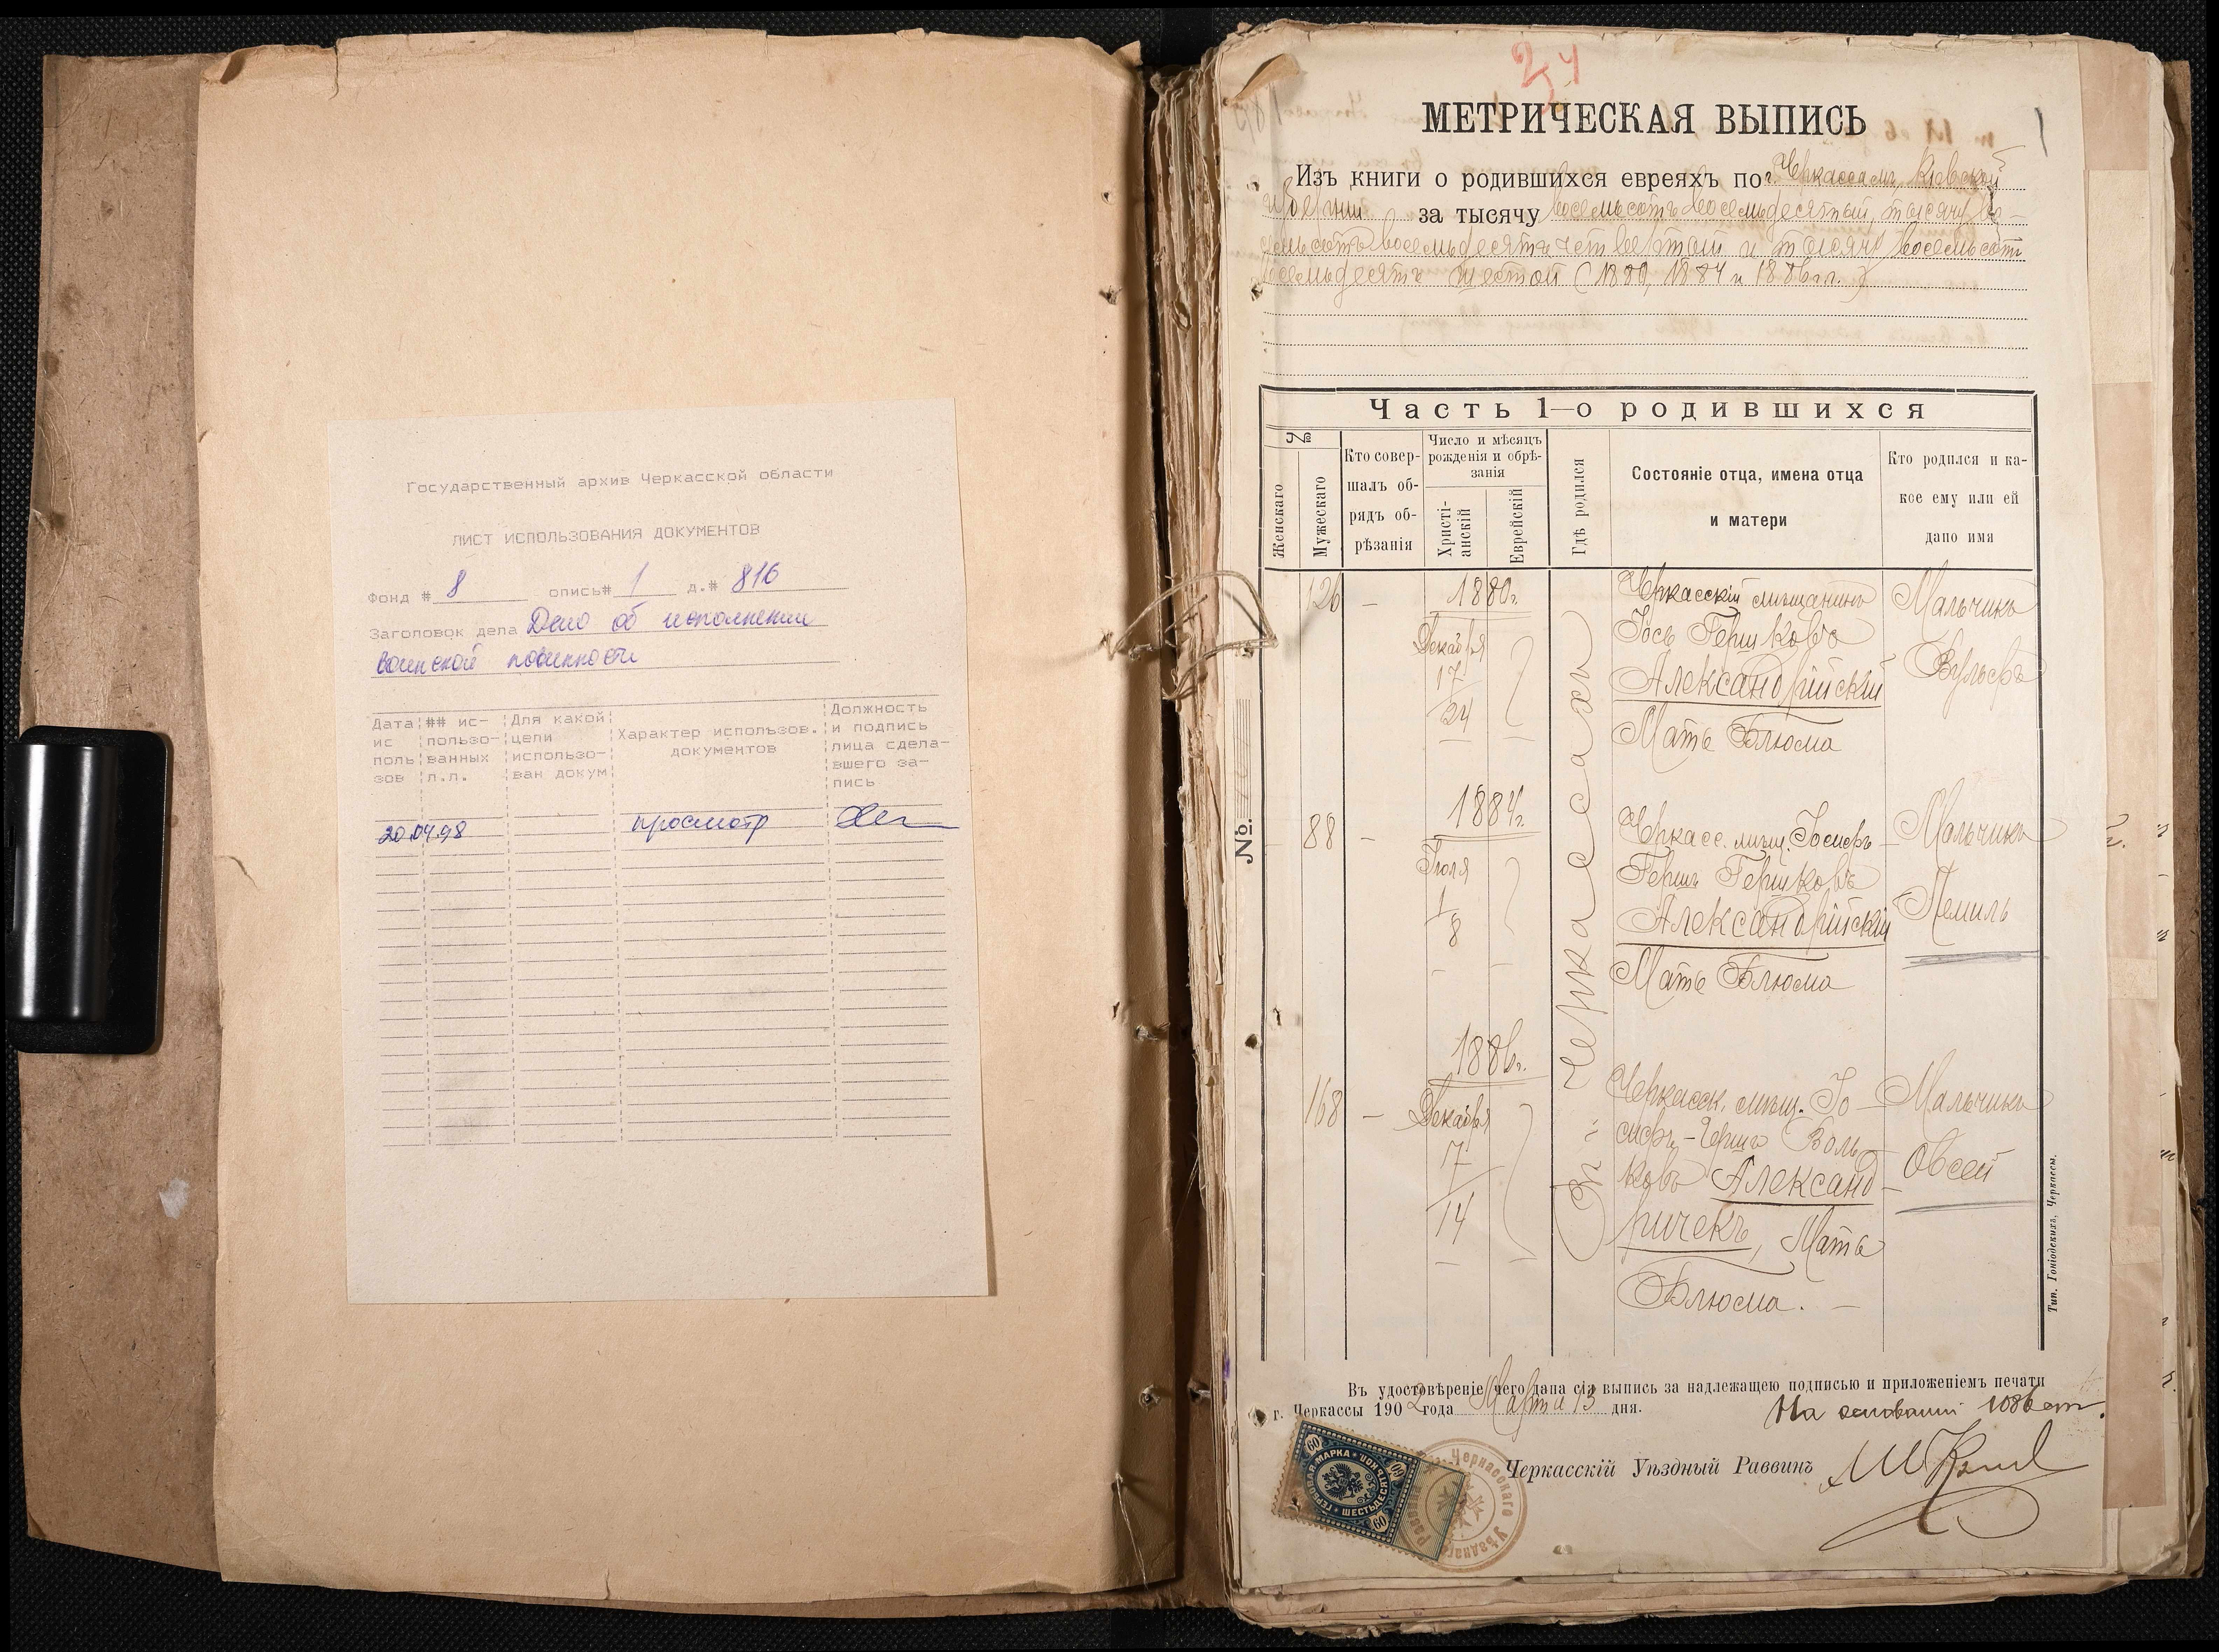 Государственный архив Черкасской области
ЛИСТ ИСПОЛЬЗОВАНИЯ ДОКУМЕНТОВ
Фонд # 8 опись# 1 д.# 816
Заголовок дела Дело об исполнении
воинской повинности
Дата ис поль зов
## ис- пользо- ванных л.л.
Для какой цели использо- ван докум
Характер использов. документов
Должность и подпись лица сдела- вшего за- пись
20.04.98 просмотр
24
МЕТРИЧЕСКАЯ ВЫПИСЬ
1
Изъ книги о родившихся евреяхъ по г. Черкассамъ, Кіевской
губерніи за тысячу восемьсотъ восемьдесятый, тысячу во-
семьсотъ восемьдесятъ четвертый и тысячу восемьсотъ
восемьдесятъ шестой (1880, 1884 и 1886 гг.)
Часть 1—о родившихся
№
Женскаго
Мужескаго
Кто совер-
шалъ об-
рядъ об-
рѣзанія
Число и мѣсяцъ
рожденія и обрѣ-
занія
Христі-
анскій
Еврейскій
Гдѣ родился
Состояніе отца, имена отца
и матери
Кто родился и ка-
кое ему или ей
дано имя
126 — 1880г. Черкасскій мѣщанинъ Мальчикъ
Декабря Іось Гершковъ Вульфъ
17 Александрійскій
24 Мать Блюма
Въ Черкассахъ
№.
88 — 1884г. Черкасс. мѣщ. Іосифъ- Мальчикъ
Іюля Гершъ Гершковъ
1 Александрійскій Лемиль
8
Мать Блюма
1886г.
168 — Декабря Черкасск. мѣщ. Іо- Мальчикъ
17 сифъ-Гершъ Воль- Овсей
14 ковъ Александ-
ричекъ, Мать
Блюма. —
Тип. Гоніодскихъ, Черкассы.
Въ удостовѣреніе чего дана сія выпись за надлежащею подписью и приложеніемъ печати
г. Черкассы 1902 года Марта 13 дня. На основаніи 1086 ст.
Черкасскій Уѣздный Раввинъ
60 ГЕРБОВАЯ МАРКА ШЕСТЬДЕСЯТЪ КОП. 60
Черкасскаго Уѣзднаго